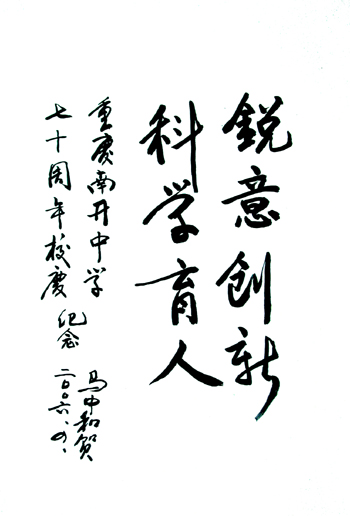 銳意创新
科学育人
重庆南开中学
七十周年校慶纪念
马中和贺
二〇〇六、四、